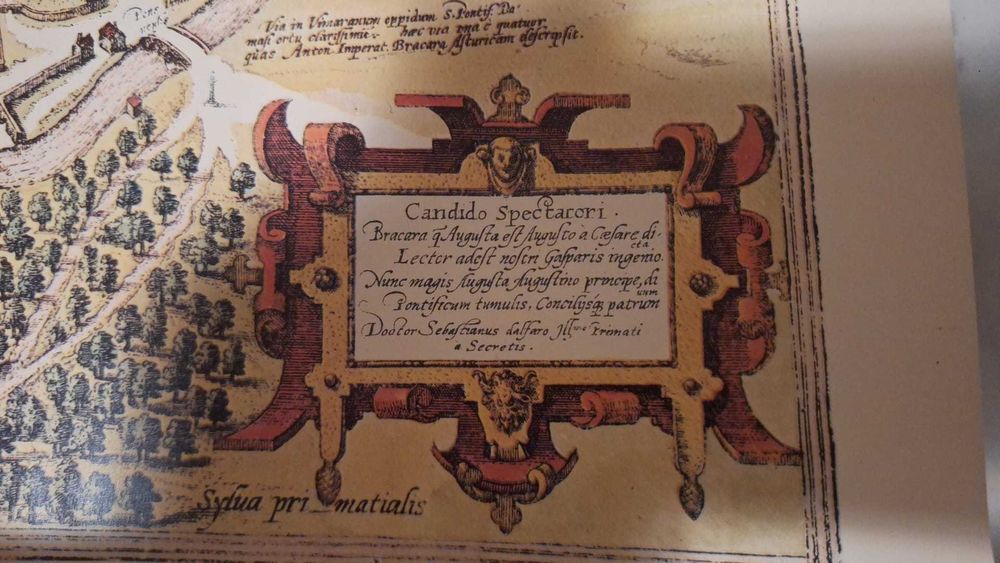 Pene
verde
Via in Vimaranum oppidum S. Pontif. Da
masi ortu clarissimū. hæc via una e quatuor
quas Anton Imperat. Bracara Asturicam descripsit.
Candido Spectatori.
Bracara q̃ Augusta est Augusto à Cæsare di-
cta
Lector adest nostri Gasparis ingenio.
Nunc magis Augusta Augustino principe, di
uum
Pontificum tumulis, Concilijsq̃ patrum
Doctor Sebastianus dalfaro Ill.mi Primati
a Secretis.
Sylua pri_matialis